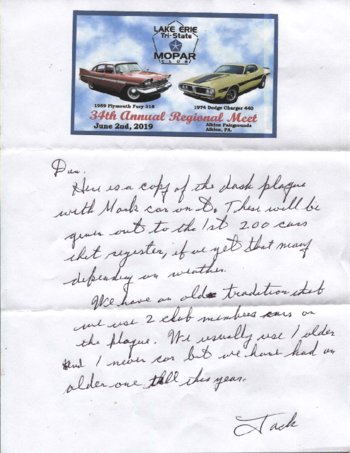 LAKE ERIE
Tri-State
MOPAR
CLUB
1959 Plymouth Fury 318
1974 Dodge Charger 440
34th Annual Regional Meet
June 2nd, 2019
Albion Fairgrounds
Albion, PA.
Dan,
Here is a copy of the dash plaque
with Mark car on it. These will be
given out to the 1st 200 cars
that register, if we get that many
depending on weather.
We have an old tradition that
we use 2 club members cars on
the plaque. We usually use 1 older
and 1 newer car but we have had an
older one till this year.
Jack